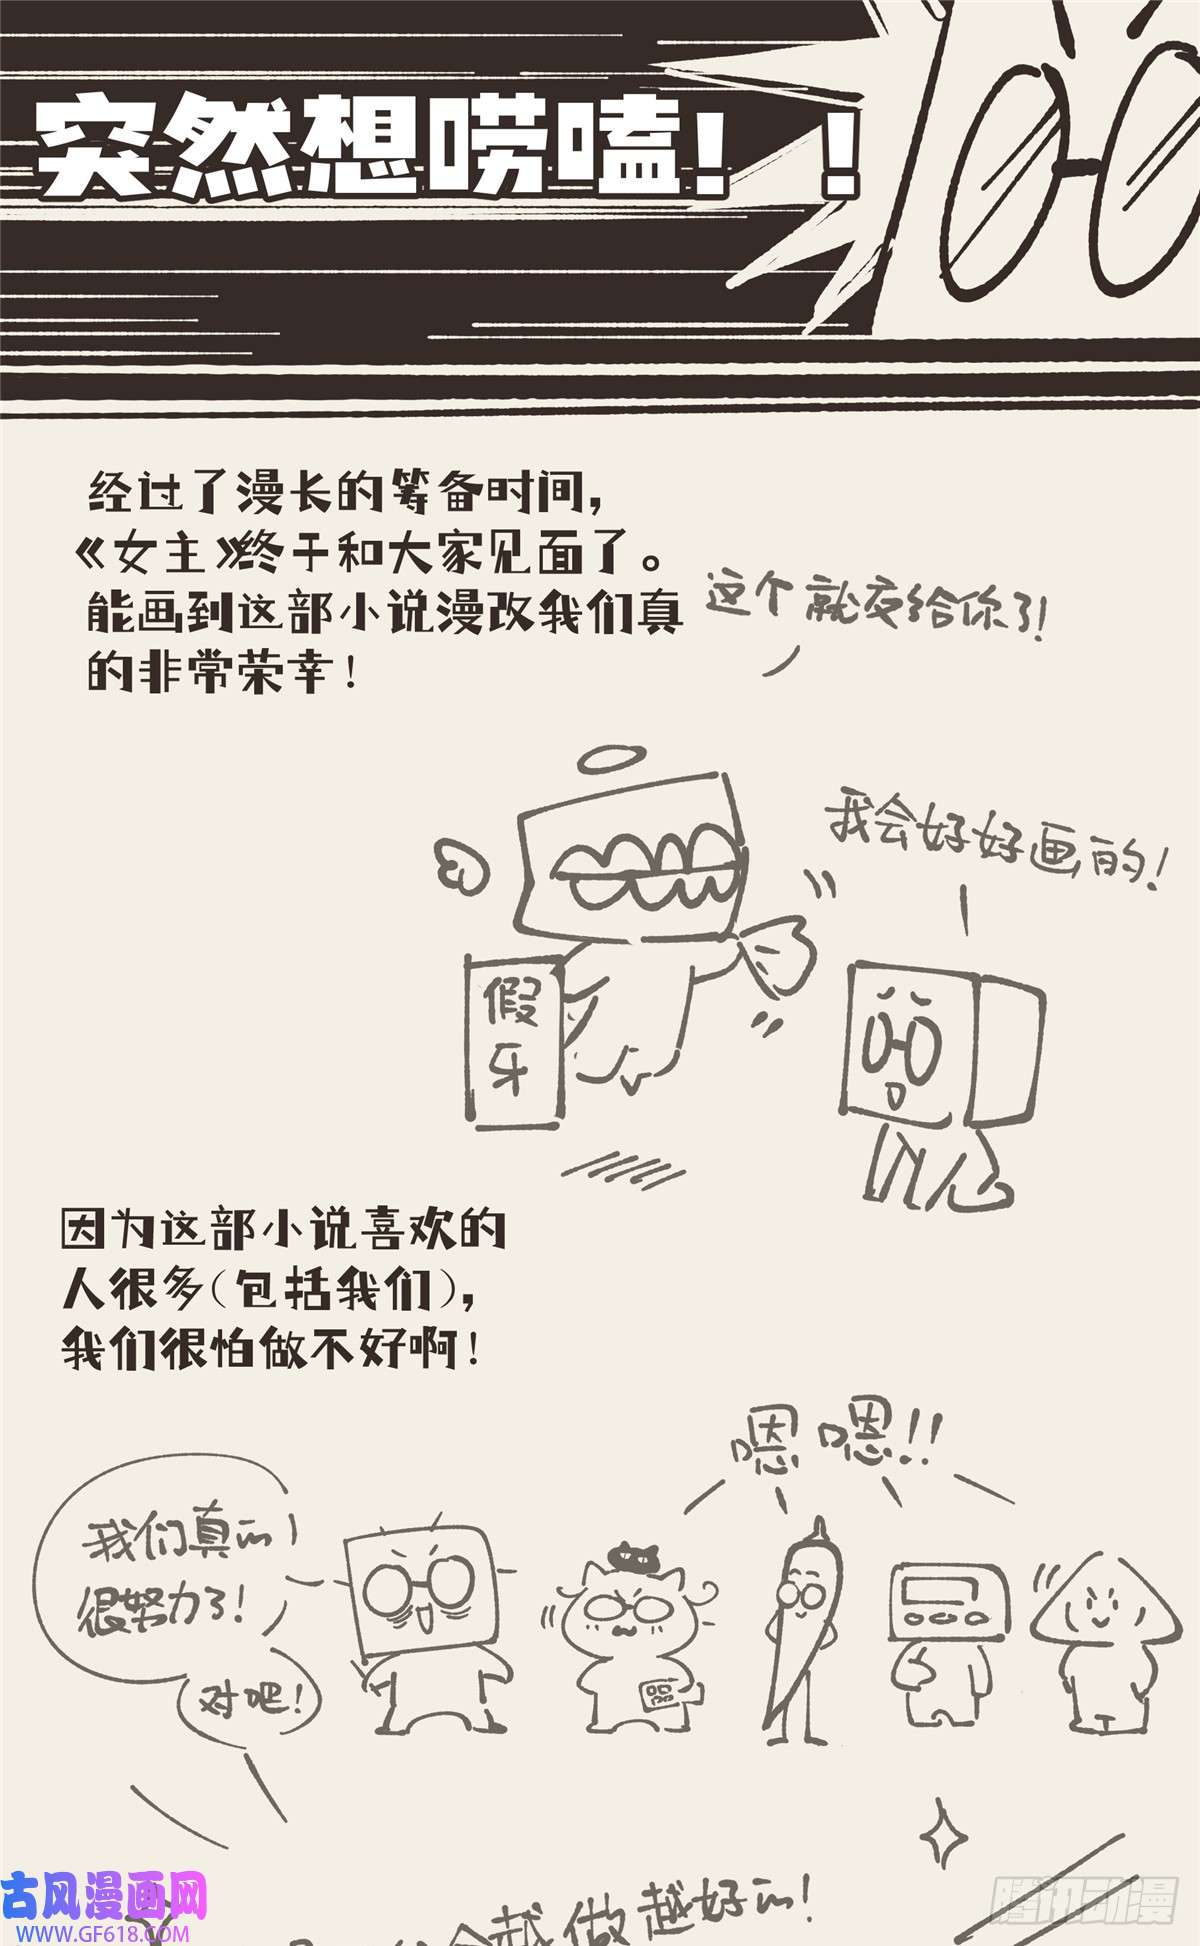 突然想唠嗑！！
经过了漫长的筹备时间，
《女主》终于和大家见面了。
能画到这部小说漫改我们真
的非常荣幸！
这个就交给你了！
我会好好画的！
假
牙
因为这部小说喜欢的
人很多（包括我们），
我们很怕做不好啊！
嗯嗯！！
我们真的
很努力了！
对吧！
会越做越好的！
古风漫画网
WWW.GF618.COM
腾讯动漫